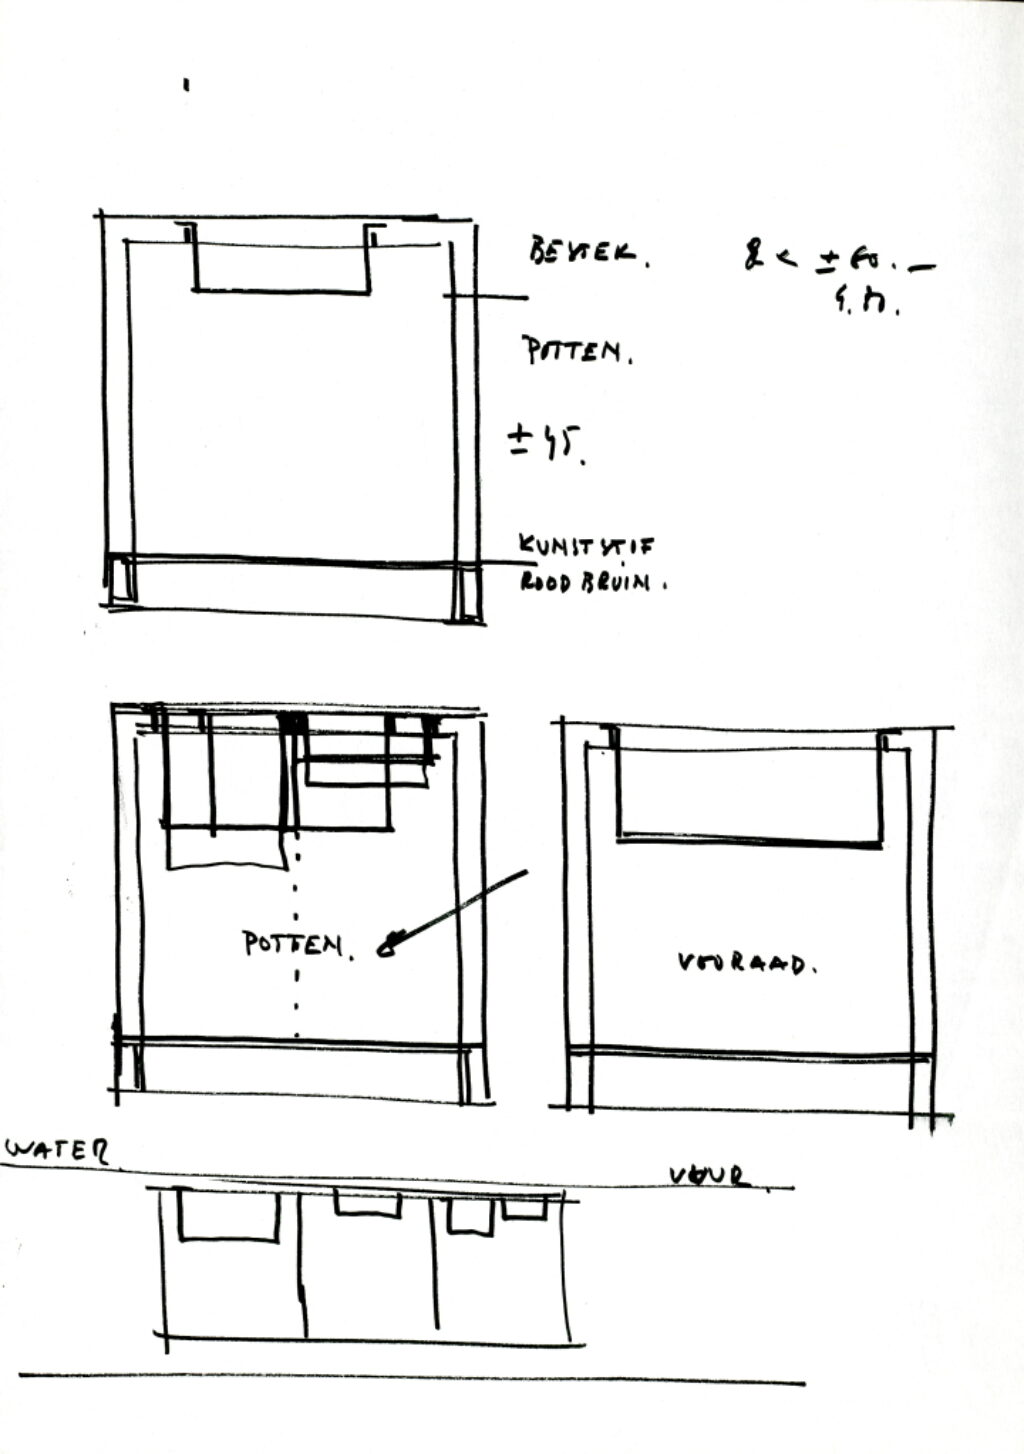 BESTEK.
POTTEN.
± 45.
KUNSTSTIF
ROODBRUIM.
POTTEN.
VOORAAD.
WATER
VUUR